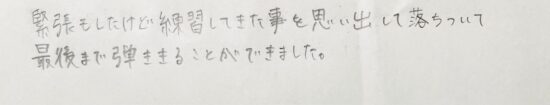 緊張もしたけど練習してきた事を思い出して落ちついて
最後まで弾ききることができました。